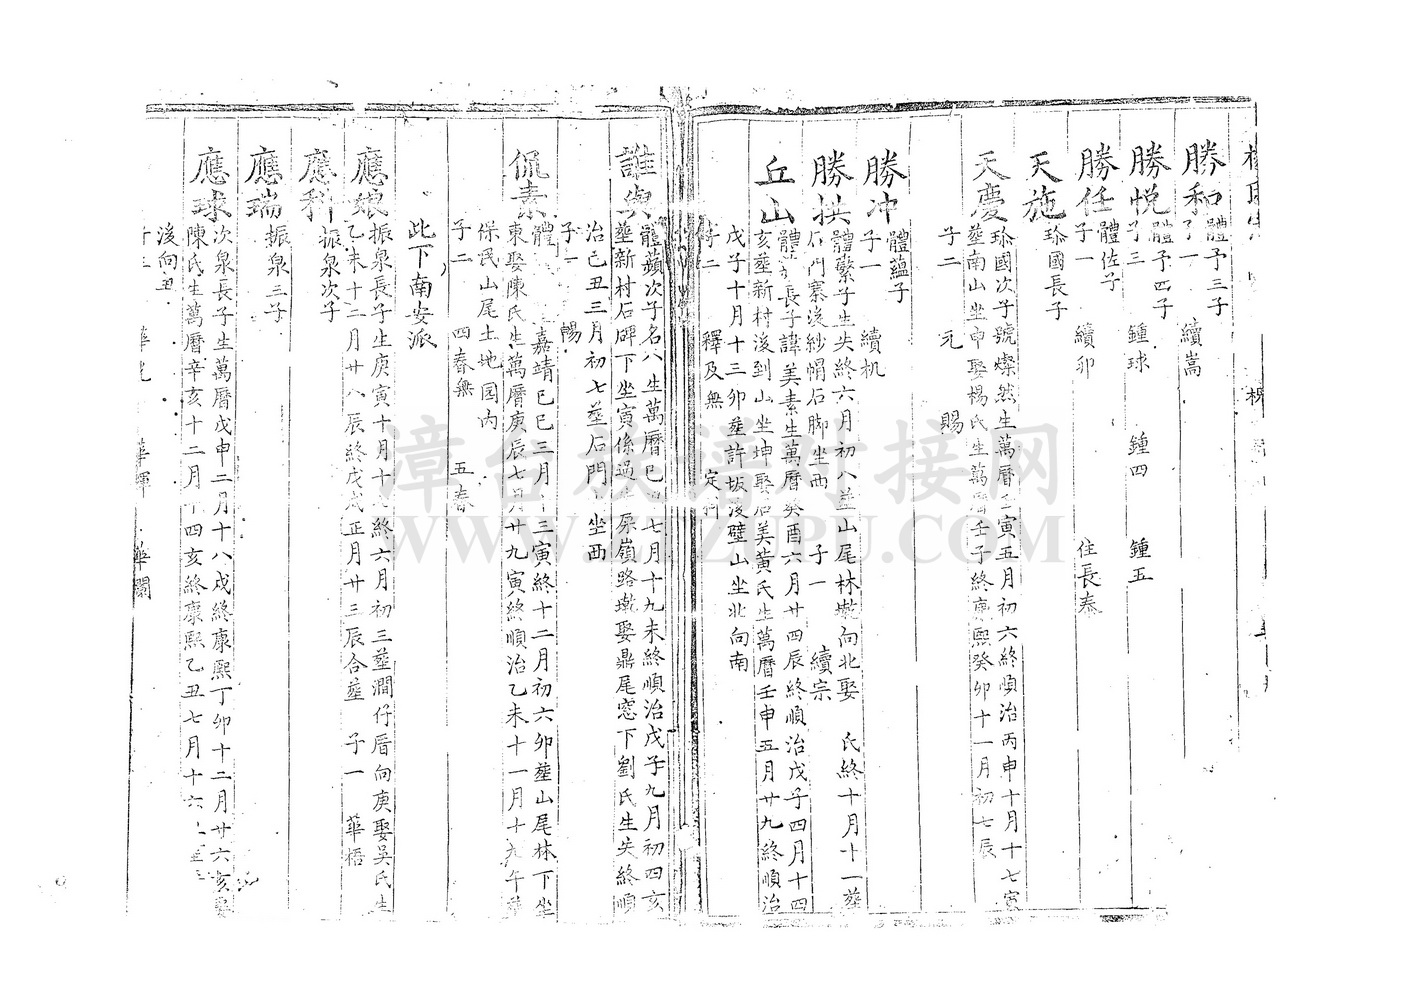 勝和 體予三子
子一 續嵩
勝悦 體予四子
子三 鍾球 鍾四 鍾五
勝任 體佐子
子一 續卯 住長泰
天施 珎國長子
天慶 珎國次子號燦然生萬曆壬寅五月初六終順治丙申十月十七寅
塟南山坐申娶楊氏生萬曆壬子終康熙癸卯十一月初七辰
子二 元 賜
勝冲 體蘊子
子一 續机
勝拱 體繁子生失終六月初八塟山尾林墘向北娶 氏終十月十一塟
石門寨後紗帽石脚坐西 子一 續宗
丘山 體 長子諱美素生萬曆癸酉六月廿四辰終順治戊子四月十四
亥塟新村後到山坐坤娶名美黄氏生萬曆壬申五月廿九終順治
戊子十月十三卯塟許坂後壁山坐北向南
子二 釋及無 定
誰與 體蘋次子名八生萬曆己 七月十九未終順治戊子九月初四亥
塟新村石碑下坐寅係過 原嶺路墘娶鼎尾窓下劉氏生失終順
治己丑三月初七塟石門 坐西
子一 暢
侃素 體 嘉靖己巳三月 三寅終十二月初六卯塟山尾林下坐
東娶陳氏生萬曆庚辰七月廿九寅終順治乙未十一月十九午塟
保民山尾土地园内
子二 四春無 五春
此下南安派
應娘 振泉長子生庚寅十月十 終六月初三塟澗仔厝向庚娶吳氏生
乙未十二月廿八辰終戊戌正月廿三辰合塟 子一 華梧
應科 振泉次子
應瑞 振泉三子
應球 次泉長子生萬曆戊申二月十八戌終康熙丁卯十二月廿六亥娶
陳氏生萬曆辛亥十二月 四亥終康熙乙丑七月十六
後向丑
子三 華 華輝 華閣
漳台族谱对接网
WWW.ZTZUPU.COM